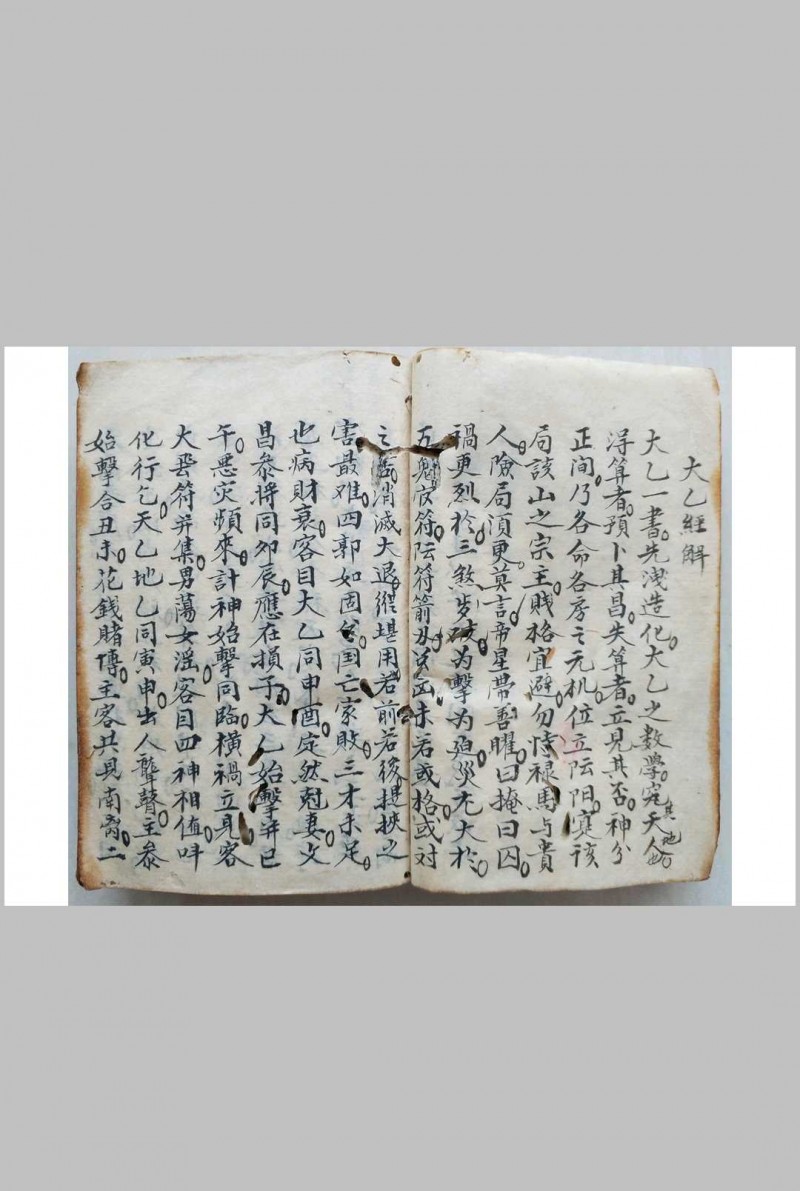 大乙經解
大乙一書。先洩造化。大乙之數學。究天人其地也。
淂算者。預卜其昌。失算者。立見其否。神分
正间。乃各命各房之元机。位立阮阳。寔该
局該山之宗主。賤格宜避。勿恃禄馬与貴
人。險局須更。莫言帝星帶善曜。曰掩曰囚。
禍更烈於三煞。歩破。为擊为廹。災尤大於
五符。阮符箭刃。函。未若或格。或对
之消滅。大退。縱堪用。若前若後。提挾之
害最难。四郭如固。国亡家敗。三才未足。
也病財衰。客目大乙同申酉。定然尅妻。文
昌参將同卯辰。應在損子。大乙始擊并巳
午。悪灾頻來。計神始擊同臨。横禍立見。客
大符并集。男蕩女滛。客目四神相值。叫
化行乞。天乙地乙同寅申。出人聾聲。主参
始擊合丑未。花錢賭博。主客共見南离。二